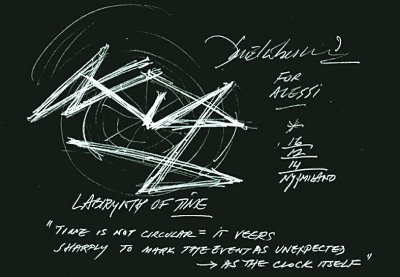 FOR
ALESSI
16
12
14
NY/MILANO
LABIRYNTH OF TIME
"TIME IS NOT CIRCULAR = IT VEERS
SHARPLY TO MARK THE EVENT AS UNEXPECTED
→ AS THE CLOCK ITSELF"